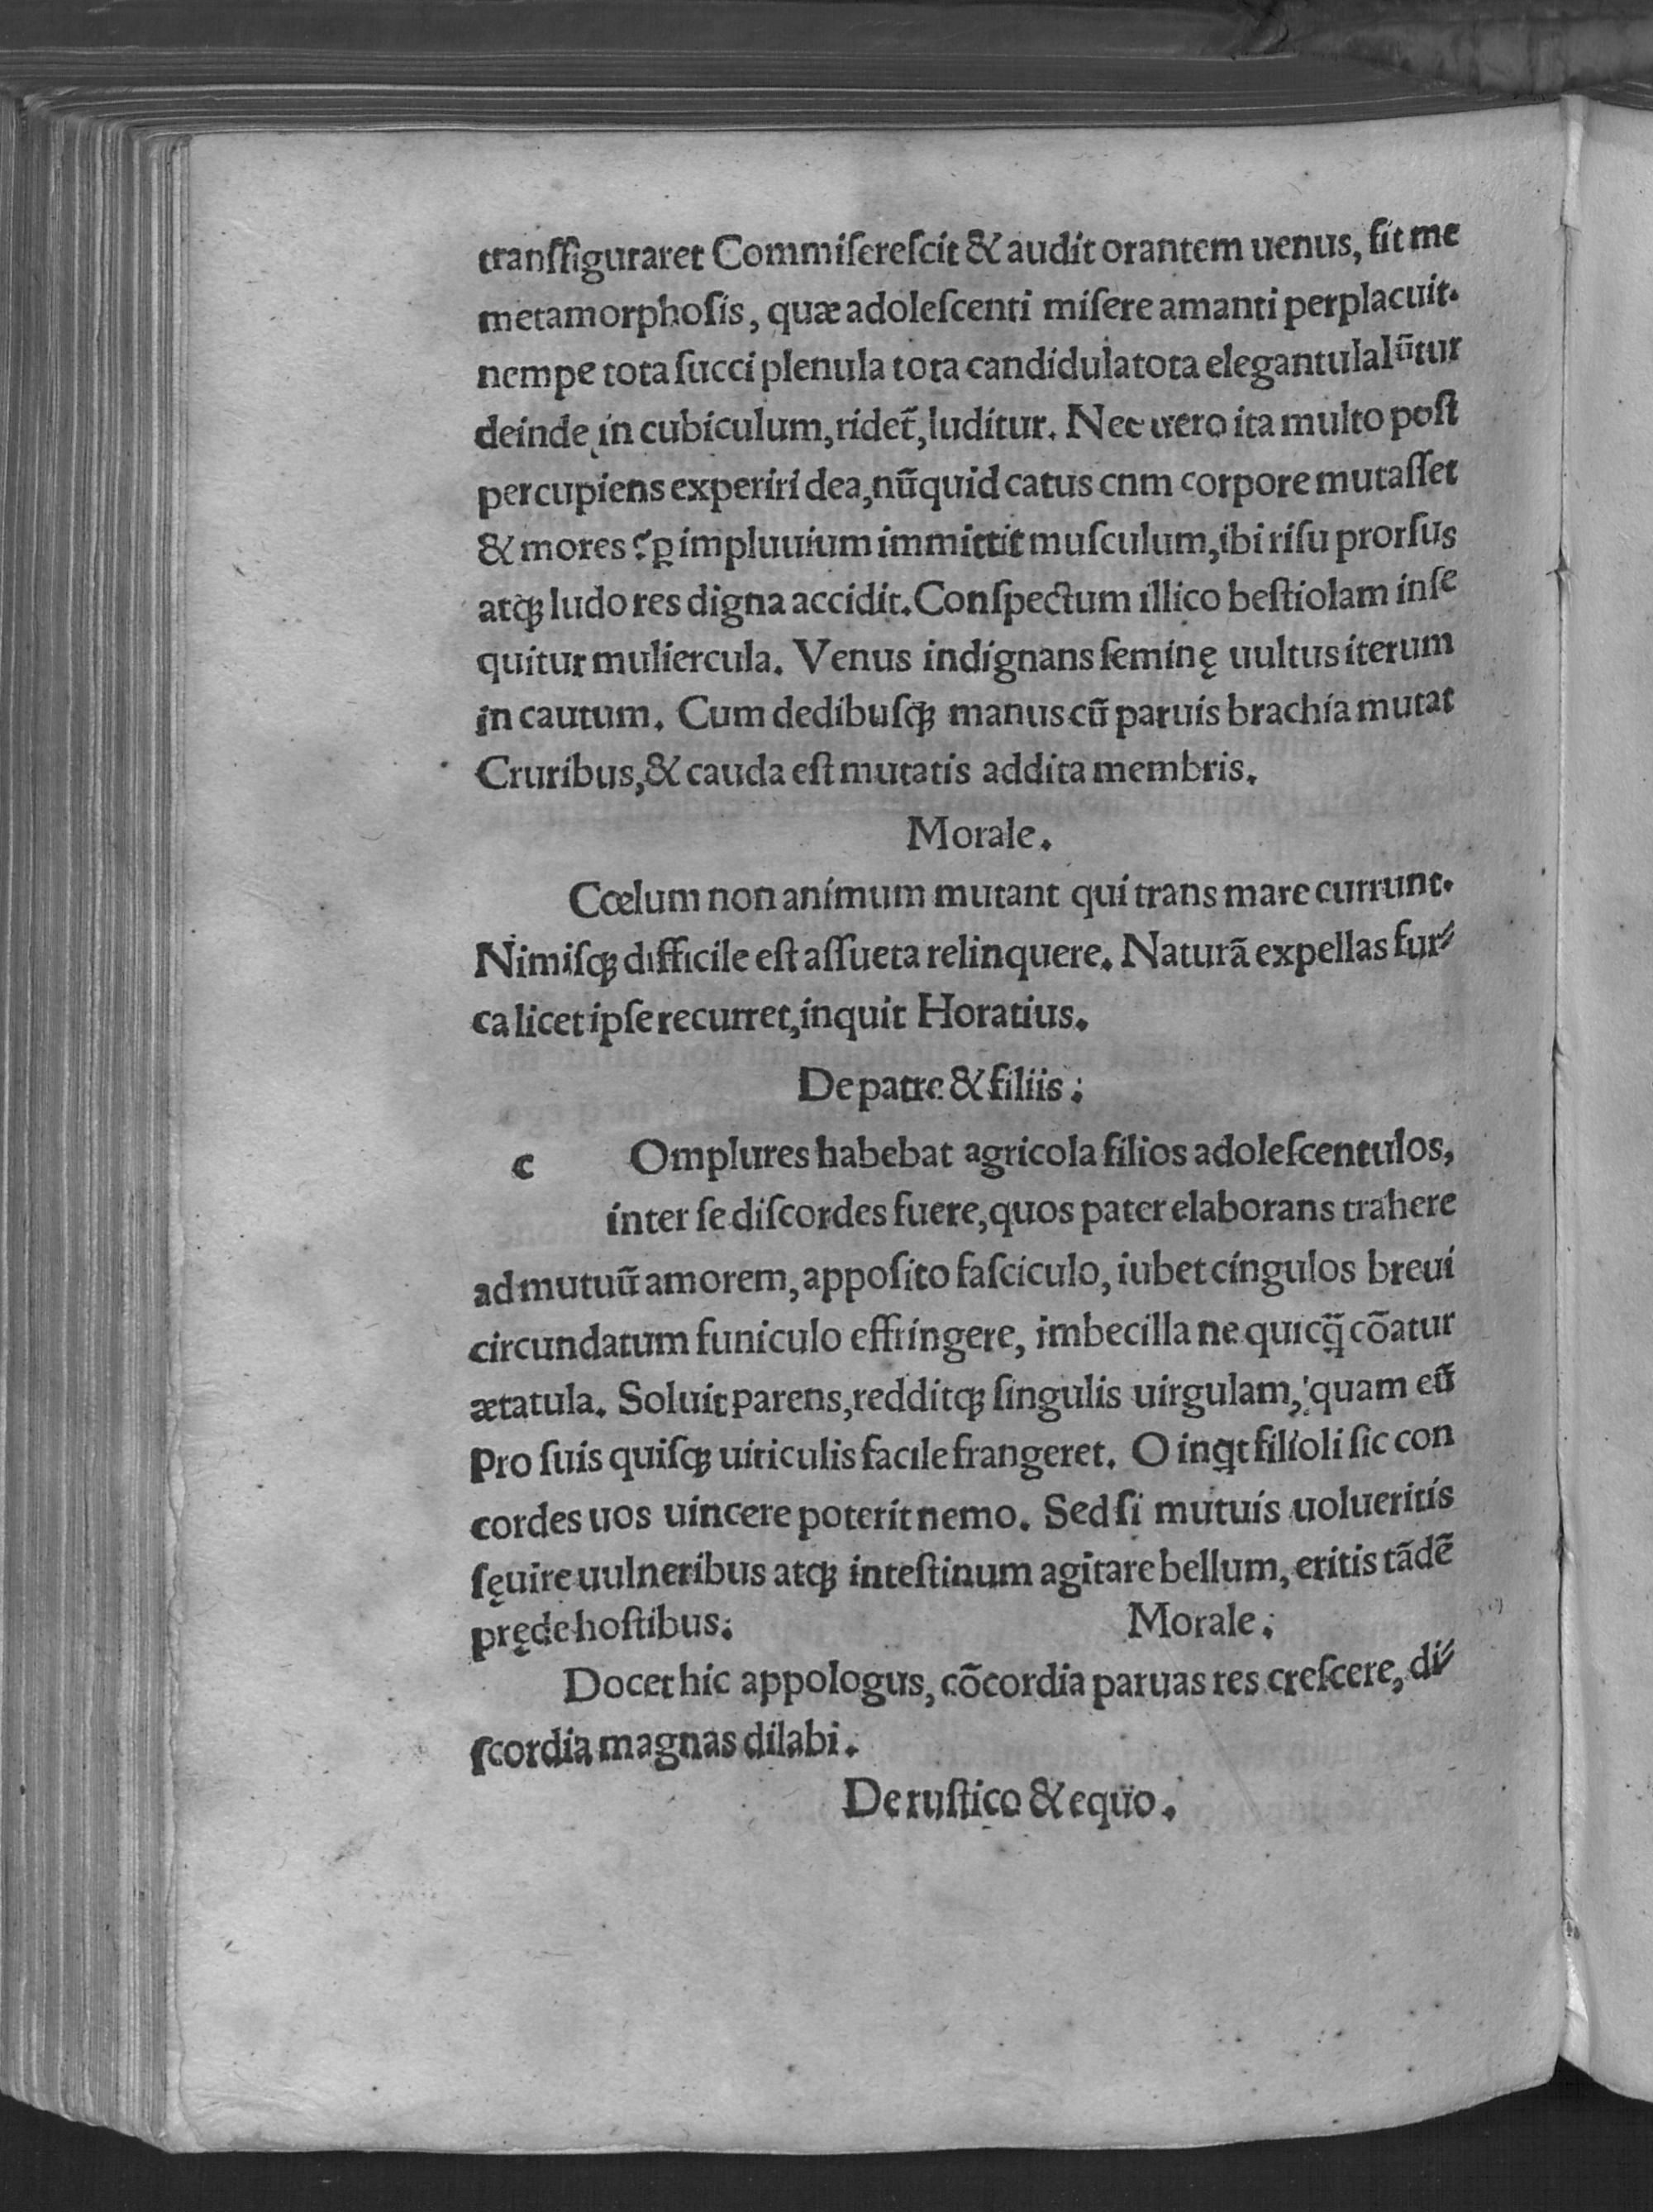 tranſfiguraret Commiſereſcit & audit orantem uenus, fit me
metamorphoſis, quæ adoleſcenti miſere amanti perplacuit.
nempe tota ſucci plenula tota candidula tota elegantula lūtur
deinde in cubiculum, ridet̃, luditur. Nec uero ita multo poſt
percupiens experiri dea, nūquid catus cnm corpore mutaſſet
& mores ꝑ impluuium immittit muſculum, ibi riſu prorſus
atq; ludo res digna accidit. Conſpectum illico beſtiolam inſe
quitur muliercula. Venus indignans feminę uultus iterum
in cautum. Cum dedibuſq; manus cū paruis brachia mutat
Cruribus, & cauda eſt mutatis addita membris.
Morale.
Cœlum non animum mutant qui trans mare currunt.
Nimiſq; difficile eſt aſſueta relinquere. Naturā expellas fur⸗
ca licet ipſe recurret, inquit Horatius.
De patre & filiis.
c Omplures habebat agricola filios adoleſcentulos,
inter ſe diſcordes fuere, quos pater elaborans trahere
ad mutuū amorem, appoſito faſciculo, iubet cingulos breui
circundatum funiculo effringere, imbecilla ne quicq̄ cōatur
ætatula. Soluit parens, redditq; ſingulis uirgulam, quam eū
pro ſuis quiſq; uiriculis facile frangeret. O inq̇t filioli ſic con
cordes uos uincere poterit nemo. Sed ſi mutuis uolueritis
ſęuire uulneribus atq; inteſtinum agitare bellum, eritis tādē
pręde hoſtibus. Morale.
Docet hic appologus, cōcordia paruas res creſcere, di⸗
ſcordia magnas dilabi.
De ruſtico & equo.